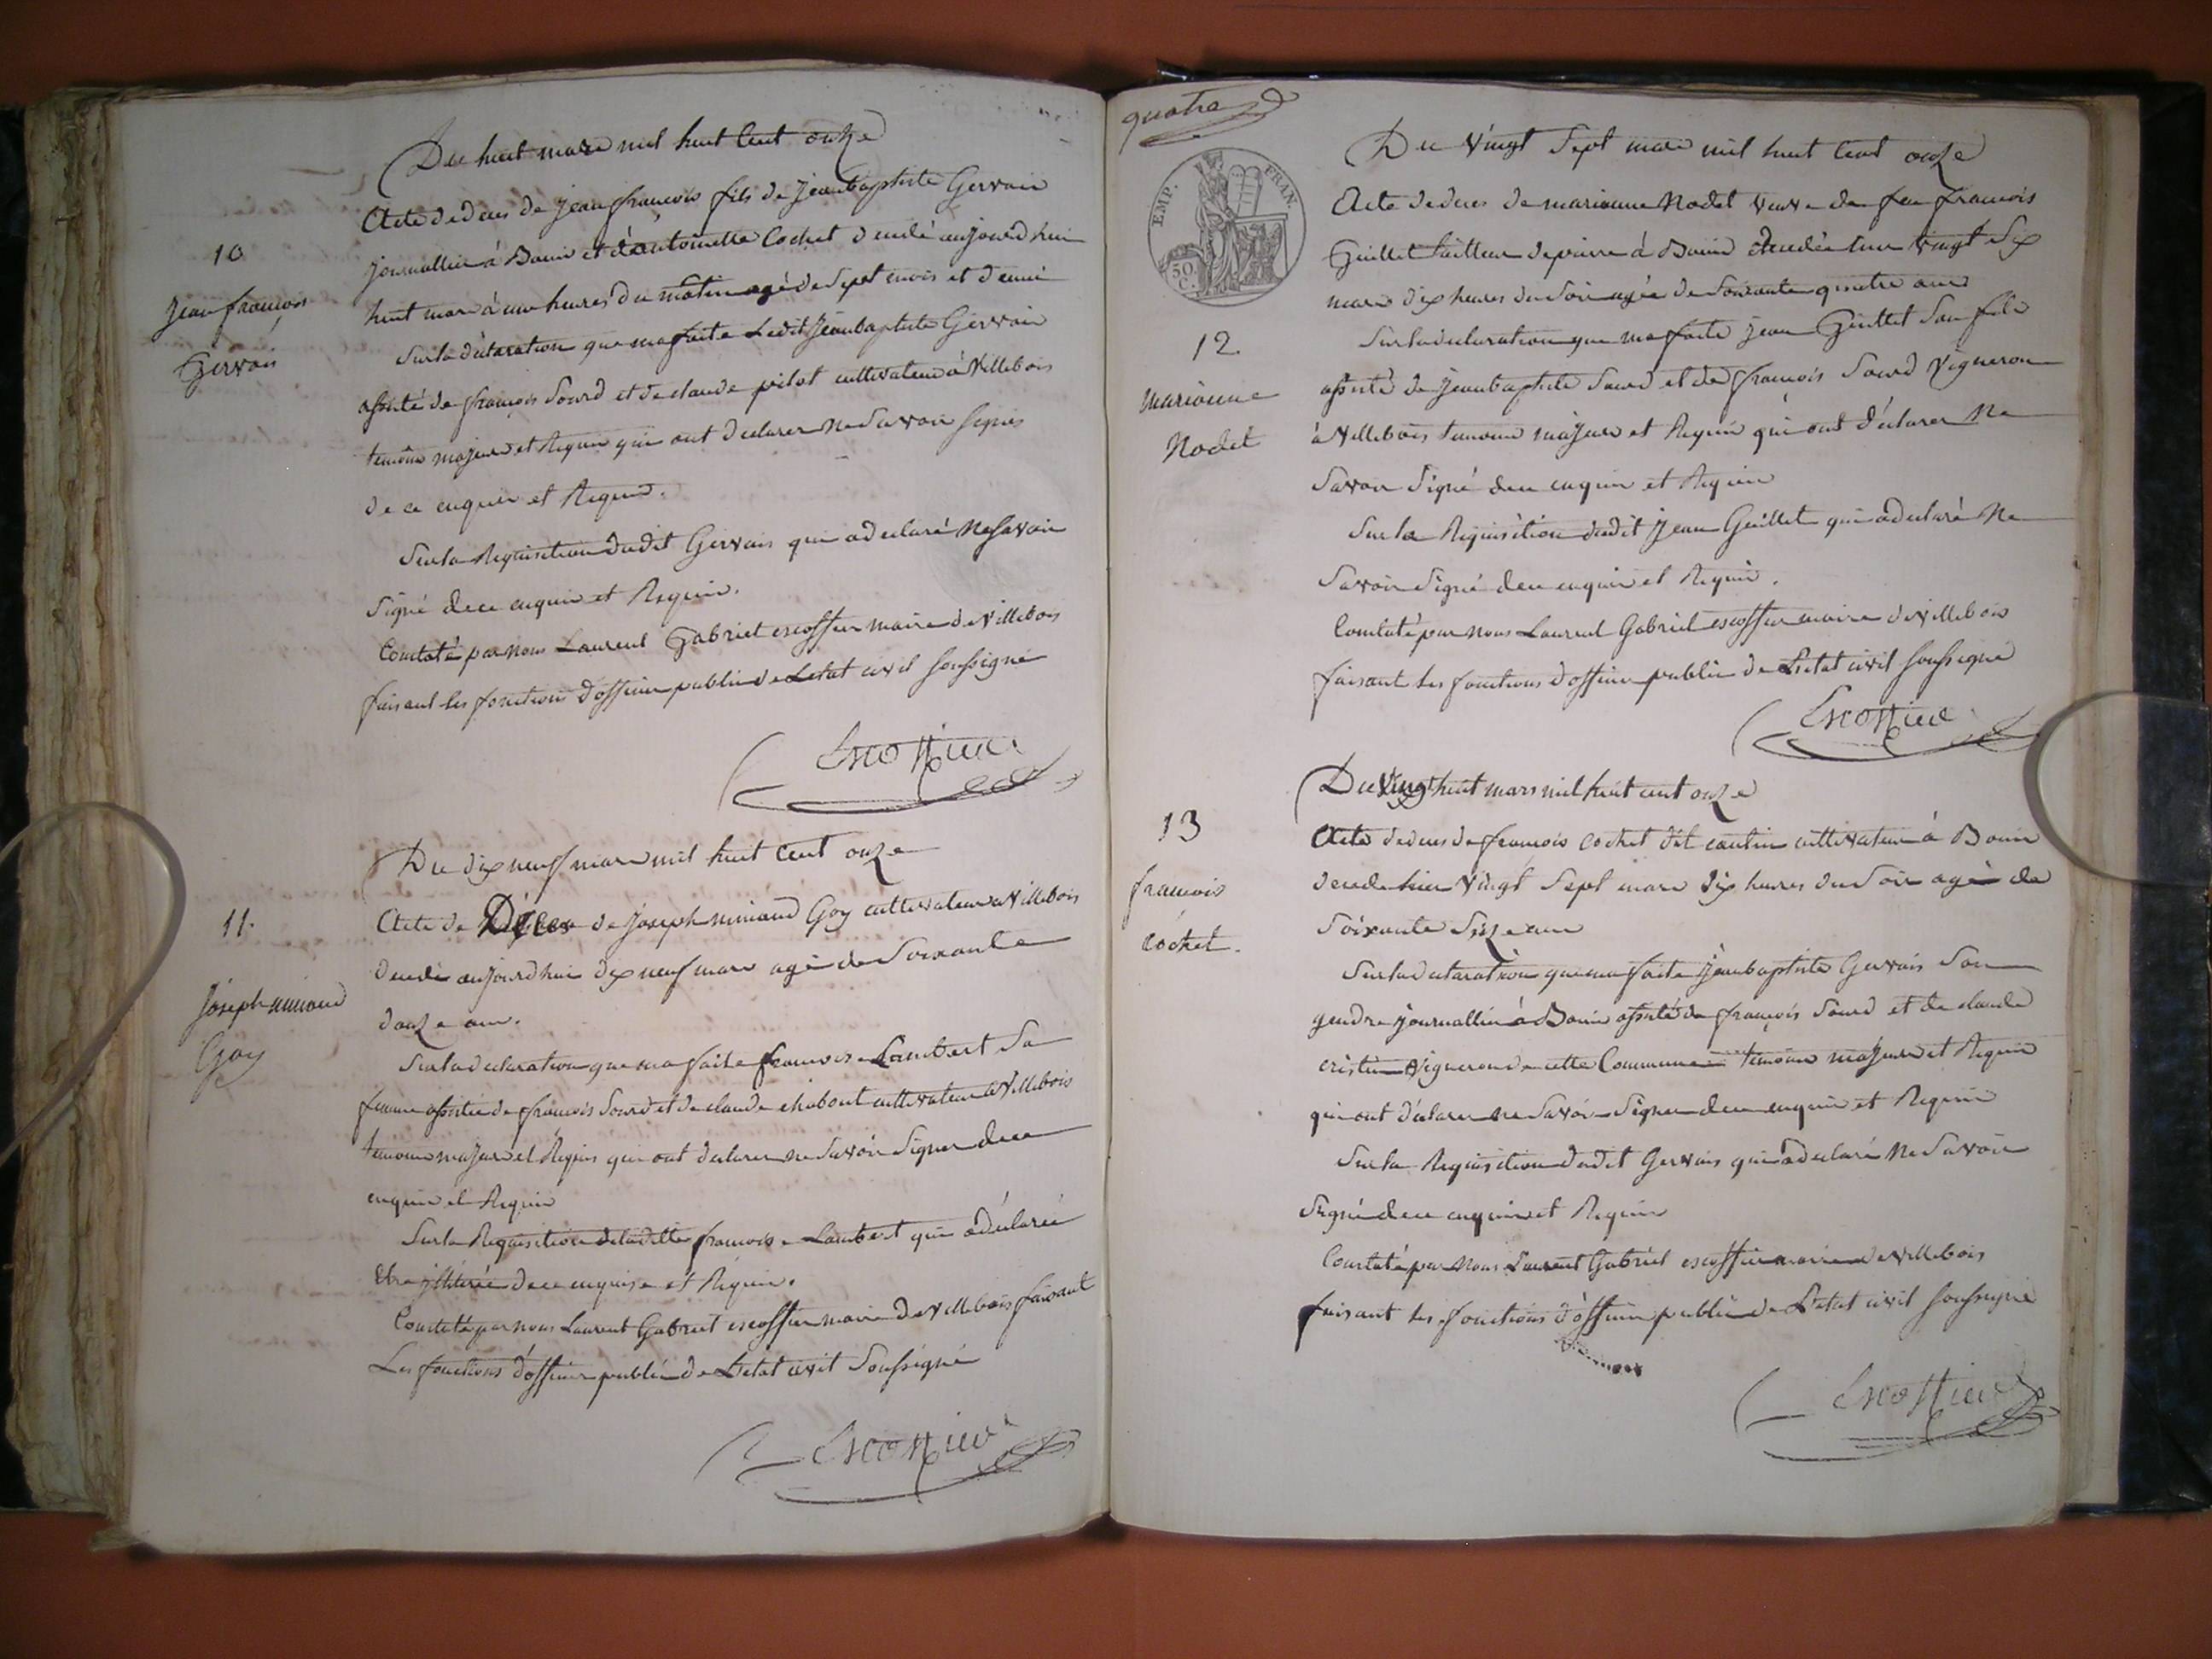 Du huit mars mil huit Cent onze
10
Jean françois
Gervais
Acte de deces de jean françois fils de Jeanbaptiste Gervais
journallier à Bouis et d'antoinette Cochet decedé aujourd'hui
huit mars à une heures du matin agé de Sept mois et demi
Sur la déclaration que ma faite Ledit Jeanbaptiste Gervais
assisté de françois Sourd et de claude pilot cultivateur à Villebois
temoins majeurs et Requis qui ont declarer ne Savoir signer
de ce enquis et Requis.
Sur la Requisition dudit Gervais qui a declaré ne Savoir
Signé de ce enquis et Requis.
Constaté par nous Laurent Gabriel escoffier maire de Villebois
faisant les fonctions d'officier public de Letat civil soussigné
Escoffier
Du dix neuf mars mil huit Cent onze
11.
joseph miniand
Goy
Acte de Déces de joseph miniand Goy cultivateur a Villebois
decedé aujourd'hui dix neuf mars agé de Soixante
douze ans.
Sur la declaration que ma faite françoise Lambert Sa
femme assistée de françois Sourd et de claude chabout cultivateur a Villebois
temoins majeurs et Requis qui ont declarer ne Savoir Signer de ce
enquis et Requis
Sur la Requisition de ladite françoise Lambert qui a déclarée
être jlliterée de ce enquise et Requise.
Constaté par nous Laurent Gabriel escoffier maire de Villebois faisant
Les fonctions d'officier public de Letat civil Soussigné
Escoffier
quatre
EMP. FRAN.
50 C.
Du Vingt Sept mars mil huit Cent onze
12.
marianne
Nodet
Acte de deces de marianne Nodet veuve de feu françois
Guillet tailleur de pierre à Bouis decedée hier vingt Six
mars dix heures du Soir agée de Soixante quatre ans
Sur la declaration que ma faite jean Guillet Son fils
assisté de jeanbaptiste Sourd et de françois Sourd Vigneron
à Villebois temoins majeurs et Requis qui ont déclarer Ne
Savoir Signé de ce enquis et Requis
Sur la Réquisition dudit jean Guillet qui a declaré Ne
Savoir Signé de ce enquis et Requis.
Constaté par nous Laurent Gabriel escoffier maire de Villebois
faisant les fonctions d'officier public de Létat civil soussigné
Escoffier
Du Vingt huit mars mil huit cent onze
13
françois
cochet.
Acte de deces de françois cochet dit cantin cultivateur à Bouis
decede hier Vingt Sept mars dix heures du Soir agé de
Soixante Seize ans
Sur la declaration que ma faite jeanbaptiste Gervais Son
gendre journallier à Bouis assisté de françois Sourd et de claude
cristin Vigneron de cette Commune temoins majeurs et Requis
qui ont déclarer ne Savoir Signer de ce enquis et Requis
Sur la Requisition dudit Gervais qui a declaré Ne Savoir
Signé de ce enquis et Requis
Constaté par Nous Laurent Gabriel escoffier maire de Villebois
faisant les fonctions d'officier public de L'etat civil soussigné
Escoffier